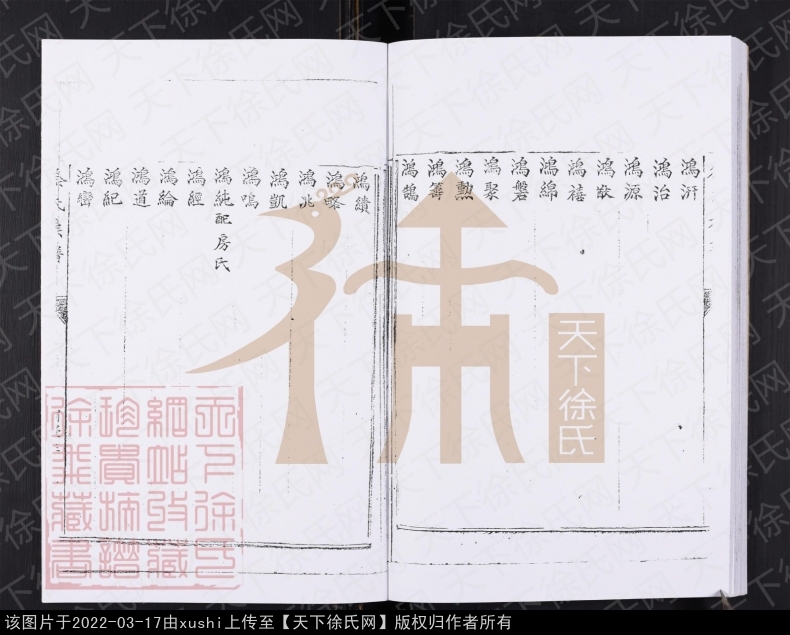 鴻汧
鴻治
鴻源
鴻猷
鴻禧
鴻綿
鴻磐
鴻聚
鴻勲
鴻籌
鴻鵠
鴻績
鴻略
鴻兆
鴻凱
鴻鳴
鴻純配房氏
鴻經
鴻綸
鴻道
鴻紀
鴻巒
天下徐氏
天下徐氏
網站收藏
珍貴極譜
徐姓藏書
该图片于2022-03-17由xushi上传至【天下徐氏网】版权归作者所有